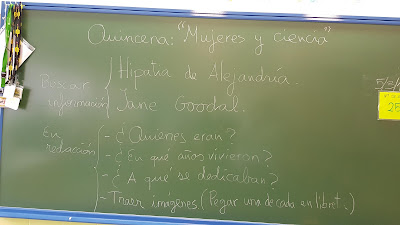 Quincena: "Mujeres y ciencia"
Buscar información
Hipatia de Alejandría.
Jane Goodal.
En redacción
- ¿Quienes eran?
- ¿En qué años vivieron?
- ¿A qué se dedicaban?
- Traer imágenes (Pegar una de cada en libret.)
25